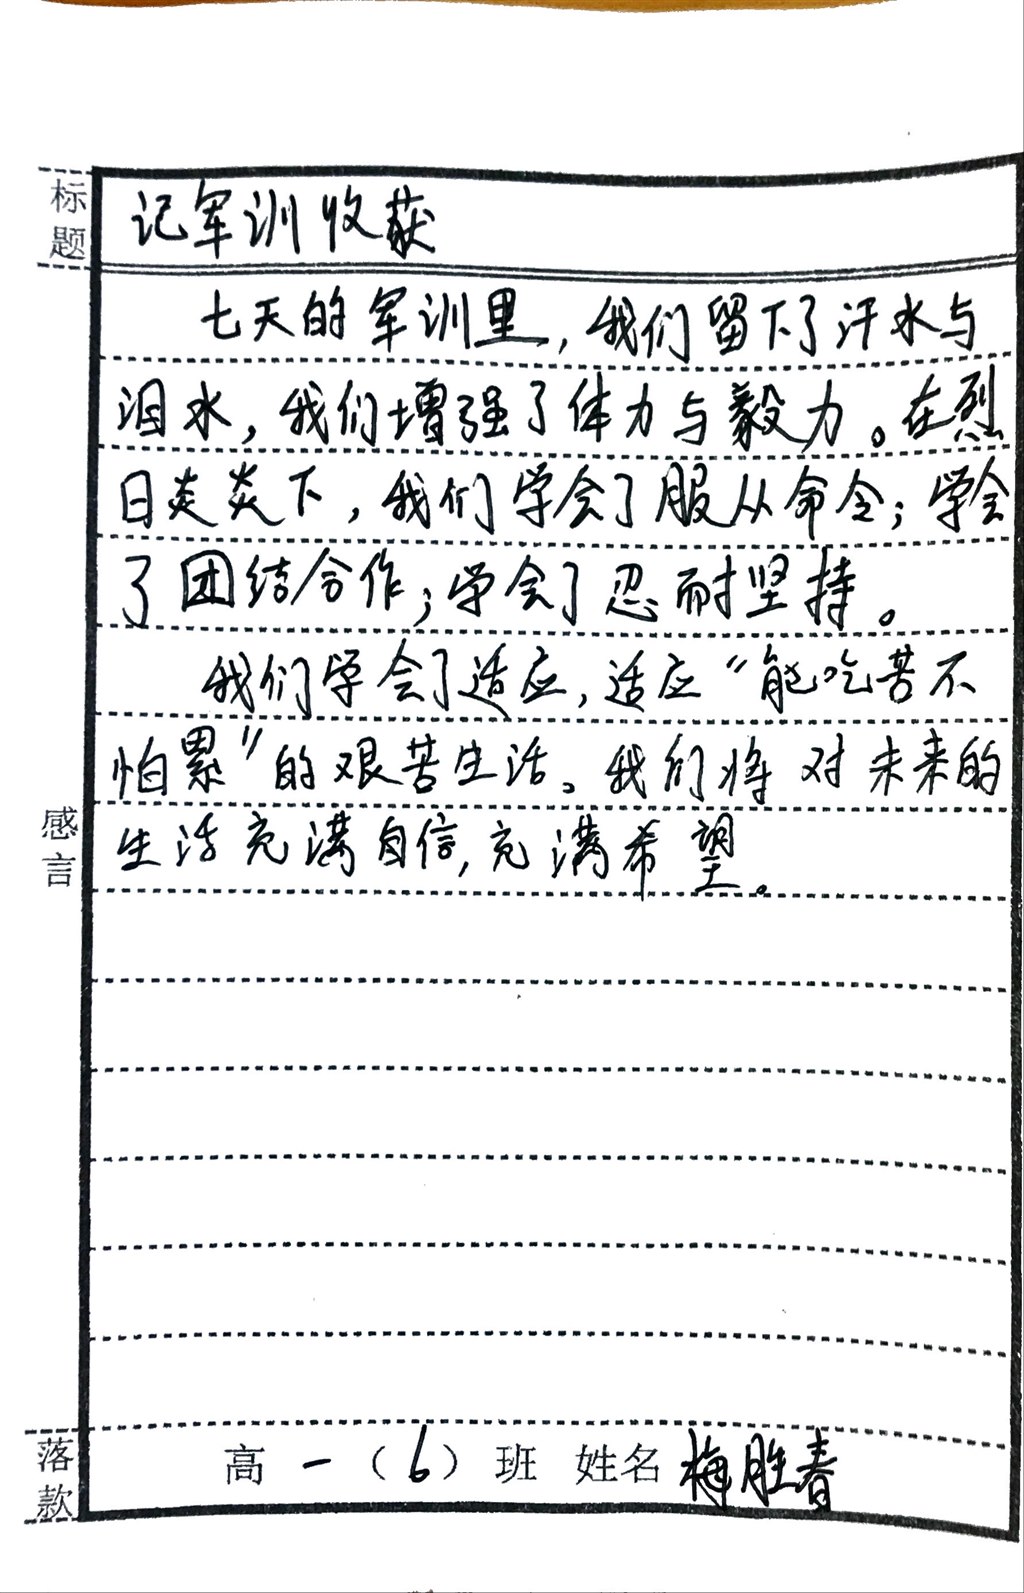 标题
记军训收获
七天的军训里，我们留下了汗水与
泪水，我们增强了体力与毅力。在烈
日炎炎下，我们学会了服从命令；学会
了团结合作；学会了忍耐坚持。
我们学会了适应，适应“能吃苦不
怕累”的艰苦生活。我们将对未来的
生活充满自信，充满希望。
感言
落款
高一（6）班 姓名 梅胜春